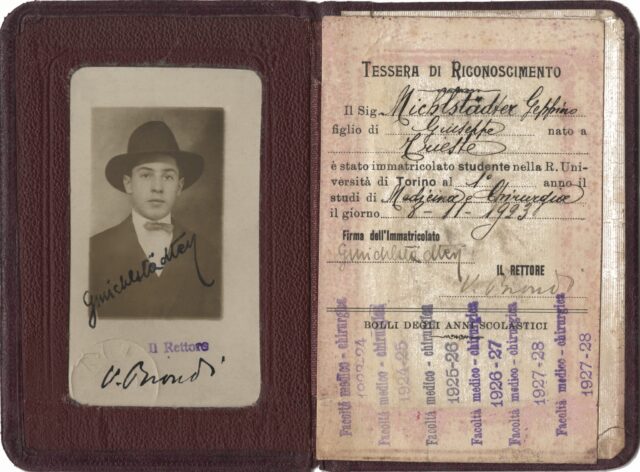 GMichlstädter
Il Rettore
V. Biondi
TESSERA DI RICONOSCIMENTO
Il Sig. Michlstädter Geppino
figlio di Giuseppe nato a
Trieste
è stato immatricolato studente nella R. Uni-
versità di Torino al 1° anno il
studi di Medicina e Chirurgia
il giorno 8-11-1923
Firma dell'Immatricolato
GMichlstädter
IL RETTORE
V. Biondi
BOLLI DEGLI ANNI SCOLASTICI
Facoltà medico - chirurgica
1923-24
Facoltà medico - chirurgica
1924-25
Facoltà medico - chirurgica
1925-26
Facoltà medico - chirurgica
1926-27
Facoltà medico - chirurgica
1927-28
Facoltà medico - chirurgica
1927-28